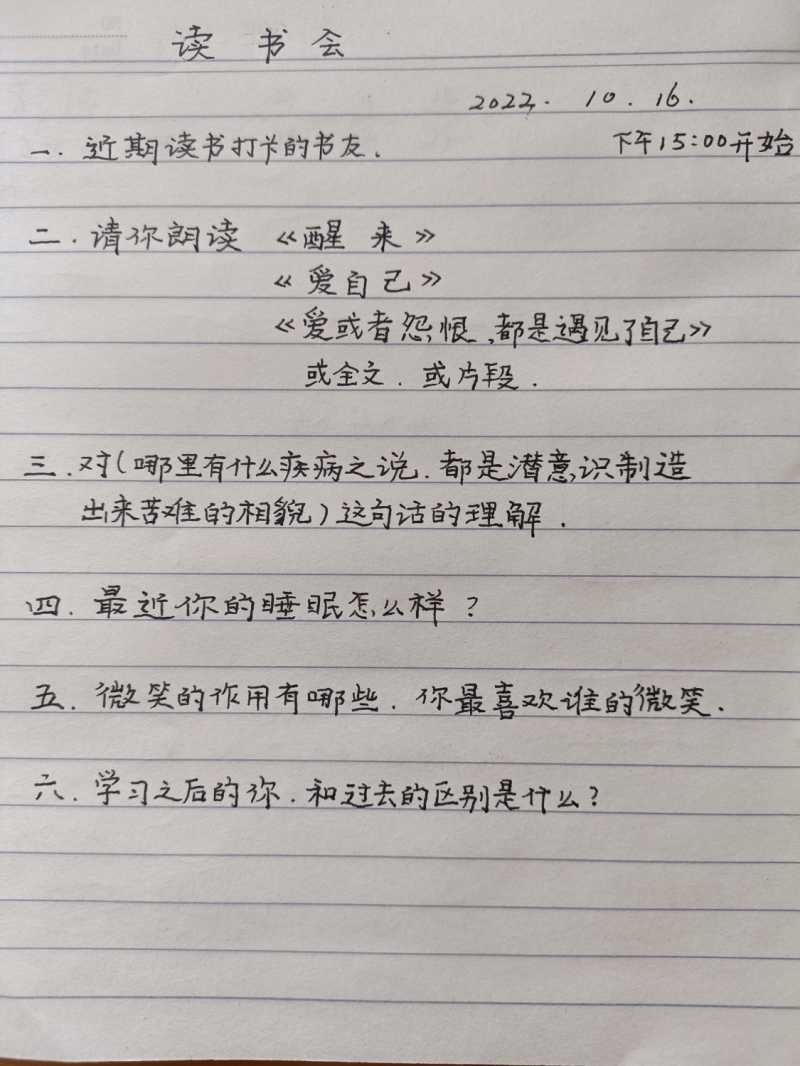 读 书 会
2022. 10. 16.
一. 近期读书打卡的书友.
下午15:00开始
二. 请你朗读 《醒 来》
《爱自己》
《爱或者怨恨,都是遇见了自己》
或全文. 或片段.
三. 对(哪里有什么疾病之说. 都是潜意识制造
出来苦难的相貌)这句话的理解.
四. 最近你的睡眠怎么样?
五. 微笑的作用有哪些. 你最喜欢谁的微笑.
六. 学习之后的你. 和过去的区别是什么?